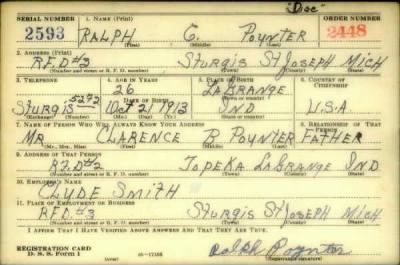 "Doc"
SERIAL NUMBER 1. NAME (Print) ORDER NUMBER
2593 RALPH C. POYNTER 2448
(First) (Middle) (Last)
2. ADDRESS (Print)
R.F.D #3 STURGIS ST JOSEPH MICH
(Number and street or R. F. D. number) (Town) (County) (State)
3. TELEPHONE 4. AGE IN YEARS 5. PLACE OF BIRTH 6. COUNTRY OF CITIZENSHIP
26 LAGRANGE
DATE OF BIRTH (Town or county)
STURGIS 5292 OCT 21 1913 IND U.S.A.
(Exchange) (Number) (Mo.) (Day) (Yr.) (State or country)
7. NAME OF PERSON WHO WILL ALWAYS KNOW YOUR ADDRESS 8. RELATIONSHIP OF THAT PERSON
MR CLARENCE R POYNTER FATHER
(First) (Middle) (Last)
9. ADDRESS OF THAT PERSON
R.D #2 TOPEKA LAGRANGE IND
(Number and street or R. F. D. number) (Town) (County) (State)
10. EMPLOYER'S NAME
CLYDE SMITH
11. PLACE OF EMPLOYMENT OR BUSINESS
R.F.D. #3 STURGIS ST JOSEPH MICH
(Number and street or R. F. D. number) (Town) (County) (State)
I AFFIRM THAT I HAVE VERIFIED ABOVE ANSWERS AND THAT THEY ARE TRUE.
REGISTRATION CARD
D. S. S. Form 1 (over) 16-17105 Ralph Poynter